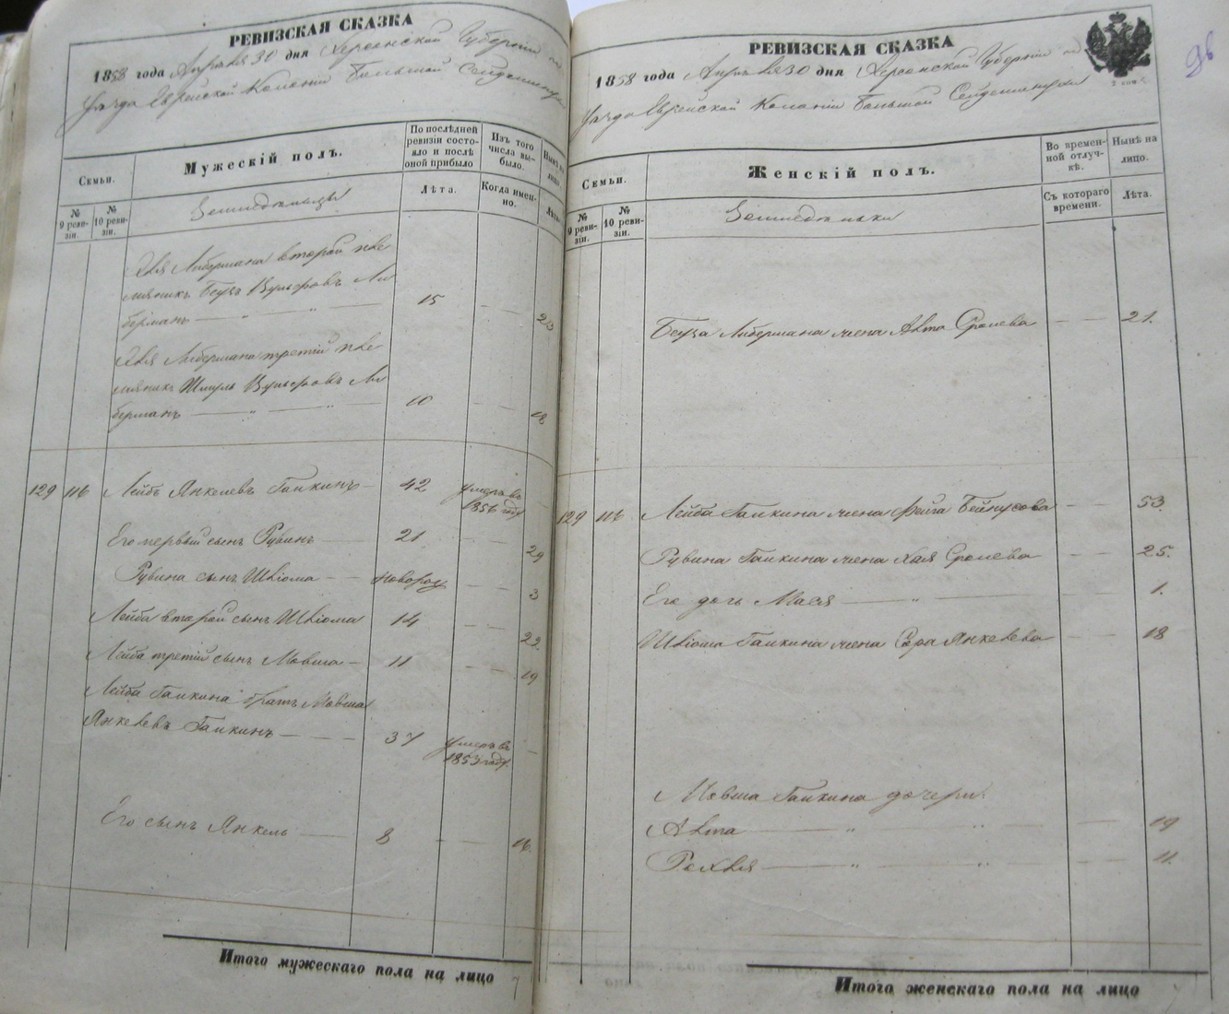 РЕВИЗСКАЯ СКАЗКА
1858 года Апреля 30 дня Херсонской Губернии
Уезда Еврейской Колонии Большой Сейдеминухи
Семьи.
№ 9 ревизіи.
№ 10 ревизіи.
Мужескій полъ.
По послѣдней
ревизіи состо-
яло и послѣ
оной прибыло
Изъ того
числа вы-
было.
Нынѣ на
лицо.
Лѣта.
Когда имен-
но.
Лѣта.
Земледѣльцы
Либермана второй пле
мянникъ Беръ Вульфовъ Ли
берманъ 15
Либермана третій пле
мянникъ Шмуль Вульфовъ Ли
берманъ 10 18
129 116 Лейбъ Янкелевъ Галкинъ 42 Умеръ въ
1856 году
Его первый сынъ Рувинъ 21 29
Рувина сынъ Шліома новорож 3
Лейба второй сынъ Шліома 14 22
Лейба третій сынъ Мовша 11 19
Лейба Галкина братъ Мовша
Янкелевъ Галкинъ 37 Умеръ въ
1853 году
Его сынъ Янкель 8 16
Итого мужескаго пола на лицо 7
96
РЕВИЗСКАЯ СКАЗКА
1858 года Апреля 30 дня Херсонской Губерніи
Уезда Еврейской Колоніи Большой Сейдеминухи
Семьи.
№ 9 ревизіи.
№ 10 ревизіи.
Женскій полъ.
Во времен-
ной отлуч-
кѣ.
Нынѣ на
лицо.
Съ котораго
времени.
Лѣта.
Земледѣлки
Либермана жена Сролева 21.
129 116 Лейба Галкина жена Фейга Бейнусова 53.
Рувина Галкина жена Хая Сролева 25.
Его дочь Мася 1.
Шліома Галкина жена Сора Янкелева 18
Мовша Галкина дочери
19
11.
Итого женскаго пола на лицо 7